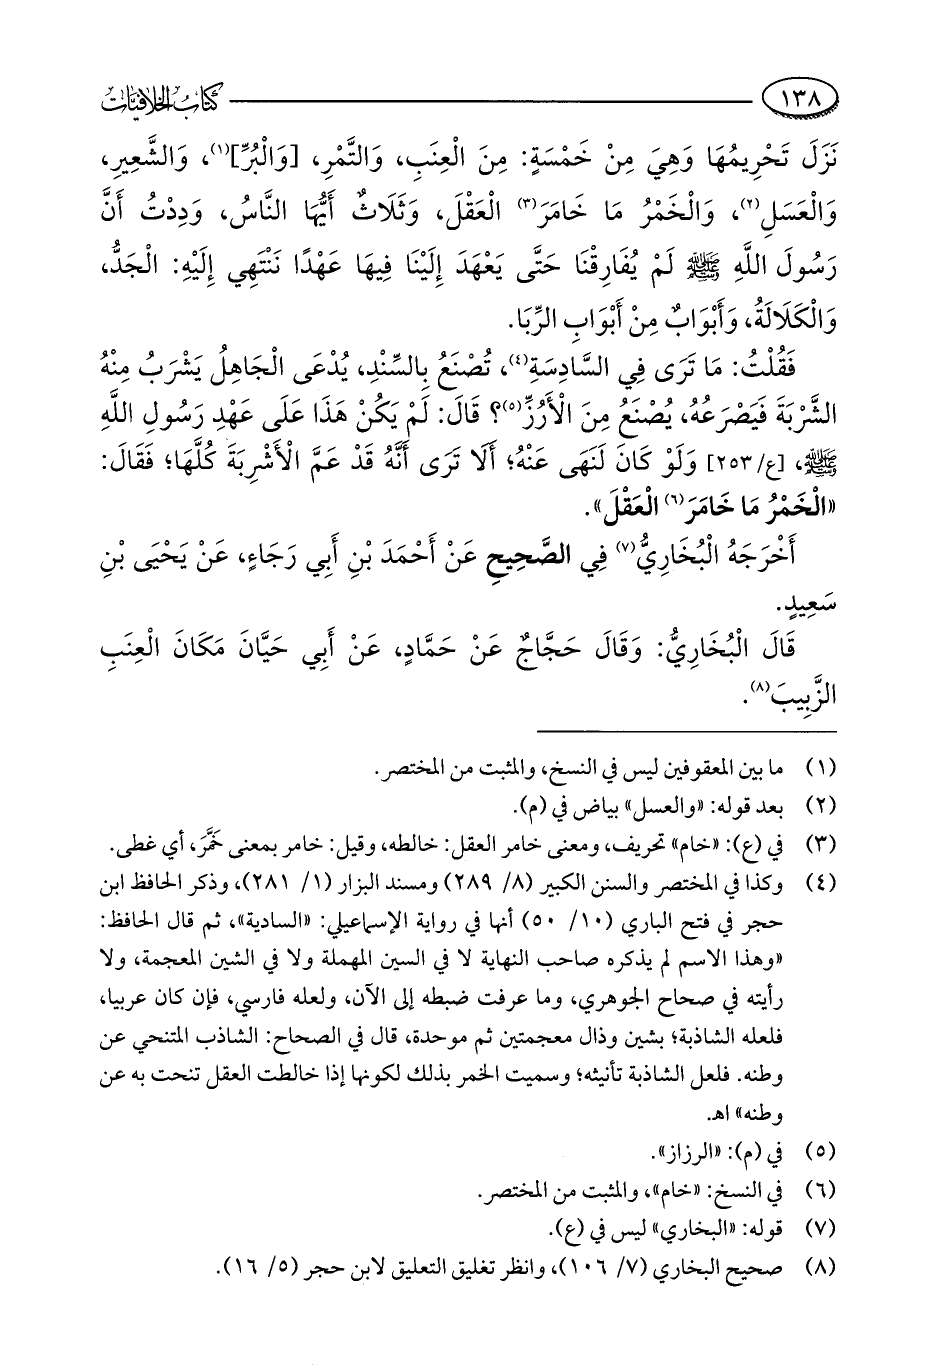 ١٣٨ كتاب الخلافيات
نَزَلَ تَحْرِيمُهَا وَهِيَ مِنْ خَمْسَةٍ: مِنَ الْعِنَبِ، وَالتَّمْرِ، [وَالْبُرِّ](١)، وَالشَّعِيرِ،
وَالْعَسَلِ(٢)، وَالْخَمْرُ مَا خَامَرَ(٣) الْعَقْلَ، وَثَلَاثٌ أَيُّهَا النَّاسُ، وَدِدْتُ أَنَّ
رَسُولَ اللَّهِ ﷺ لَمْ يُفَارِقْنَا حَتَّى يَعْهَدَ إِلَيْنَا فِيهَا عَهْدًا نَنْتَهِي إِلَيْهِ: الْجَدُّ،
وَالْكَلَالَةُ، وَأَبْوَابٌ مِنْ أَبْوَابِ الرِّبَا.
فَقُلْتُ: مَا تَرَى فِي السَّادِسَةِ(٤)، تُصْنَعُ بِالسِّنْدِ، يُدْعَى الْجَاهِلُ يَشْرَبُ مِنْهُ
الشَّرْبَةَ فَيَصْرَعُهُ، يُصْنَعُ مِنَ الْأَرُزِّ(٥)؟ قَالَ: لَمْ يَكُنْ هَذَا عَلَى عَهْدِ رَسُولِ اللَّهِ
ﷺ، [ع/ ٢٥٣] وَلَوْ كَانَ لَنَهَى عَنْهُ؛ أَلَا تَرَى أَنَّهُ قَدْ عَمَّ الْأَشْرِبَةَ كُلَّهَا؛ فَقَالَ:
«الْخَمْرُ مَا خَامَرَ(٦) الْعَقْلَ».
أَخْرَجَهُ الْبُخَارِيُّ(٧) فِي الصَّحِيحِ عَنْ أَحْمَدَ بْنِ أَبِي رَجَاءٍ، عَنْ يَحْيَى بْنِ
سَعِيدٍ.
قَالَ الْبُخَارِيُّ: وَقَالَ حَجَّاجٌ عَنْ حَمَّادٍ، عَنْ أَبِي حَيَّانَ مَكَانَ الْعِنَبِ
الزَّبِيبَ(٨).
(١) ما بين المعقوفين ليس في النسخ، والمثبت من المختصر.
(٢) بعد قوله: «والعسل» بياض في (م).
(٣) في (ع): «خام» تحريف، ومعنى خامر العقل: خالطه، وقيل: خامر بمعنى خَمَّرَ، أي غطى.
(٤) وكذا في المختصر والسنن الكبير (٨/ ٢٨٩) ومسند البزار (١/ ٢٨١)، وذكر الحافظ ابن
حجر في فتح الباري (١٠/ ٥٠) أنها في رواية الإسماعيلي: «السادية»، ثم قال الحافظ:
«وهذا الاسم لم يذكره صاحب النهاية لا في السين المهملة ولا في الشين المعجمة، ولا
رأيته في صحاح الجوهري، وما عرفت ضبطه إلى الآن، ولعله فارسي، فإن كان عربيا،
فلعله الشاذبة؛ بشين وذال معجمتين ثم موحدة، قال في الصحاح: الشاذب المتنحي عن
وطنه. فلعل الشاذبة تأنيثه؛ وسميت الخمر بذلك لكونها إذا خالطت العقل تنحت به عن
وطنه» اهـ.
(٥) في (م): «الرزاز».
(٦) في النسخ: «خام»، والمثبت من المختصر.
(٧) قوله: «البخاري» ليس في (ع).
(٨) صحيح البخاري (٧/ ١٠٦)، وانظر تغليق التعليق لابن حجر (٥/ ١٦).